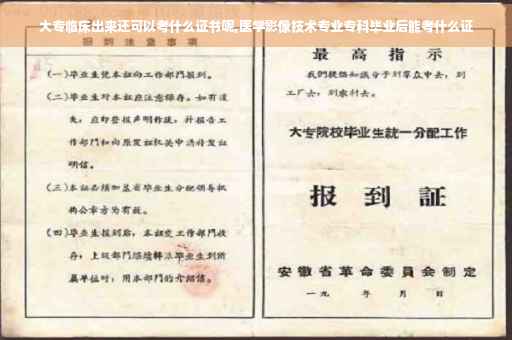 大专临床出来还可以考什么证书呢,医学影像技术专业专科毕业后能考什么证
报到注意事项
(一)毕业生凭本证向工作部门报到。
(二)毕业生对本证应注意保存。如有遗
失，应即登报声明作废，并报告工
作部门和向原发证机关申请补发证
明信。
(三)本证必须加盖省毕业生分配领导机
构公章方为有效。
(四)毕业生报到后，本证交工作部门收
存；上级部门继续转派毕业生到所
属单位时，用本部门的介绍信。
最高指示
我们提倡知识分子到羣众中去，到
工厂去，到农村去。
大专院校毕业生统一分配工作
报到証
安徽省革命委员会制定
一九 年 月 日